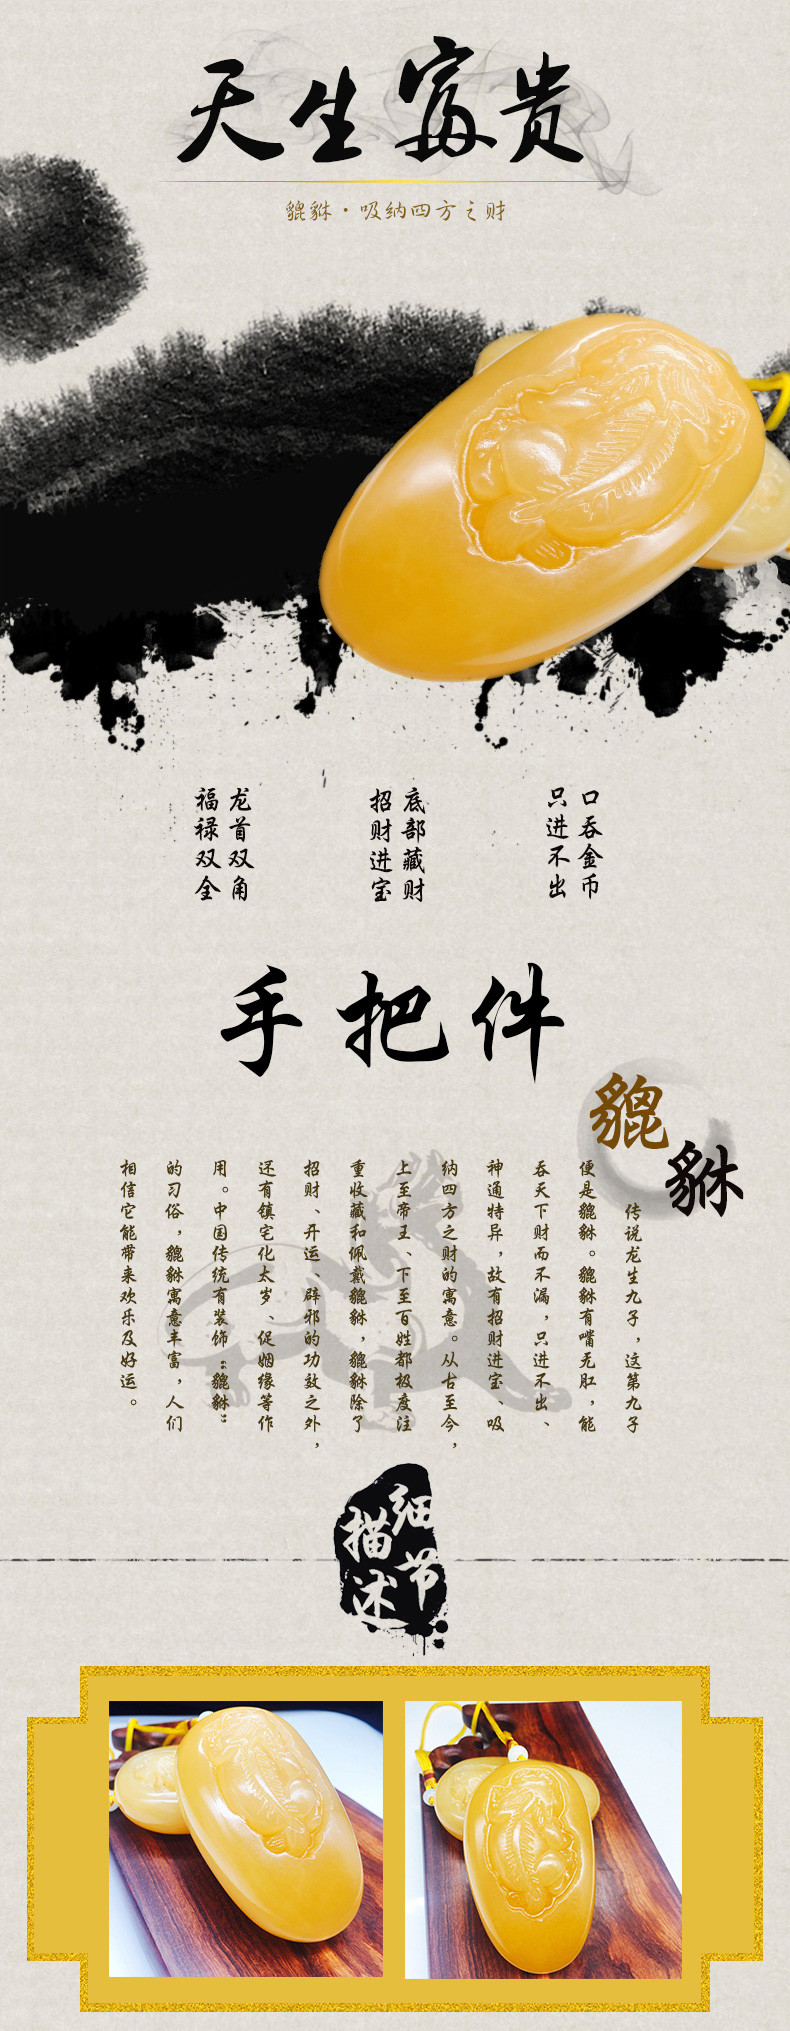 天生富贵
貔貅·吸纳四方之财
口吞金币
只进不出
底部藏财
招财进宝
龙首双角
福禄双全
手把件
貔貅
传说龙生九子，这第九子
便是貔貅。貔貅有嘴无肛，能
吞天下财而不漏，只进不出、
神通特异，故有招财进宝、吸
纳四方之财的寓意。从古至今，
上至帝王、下至百姓都极度注
重收藏和佩戴貔貅，貔貅除了
招财、开运、辟邪的功效之外，
还有镇宅化太岁、促姻缘等作
用。中国传统有装饰“貔貅”
的习俗，貔貅寓意丰富，人们
相信它能带来欢乐及好运。
细节
描述